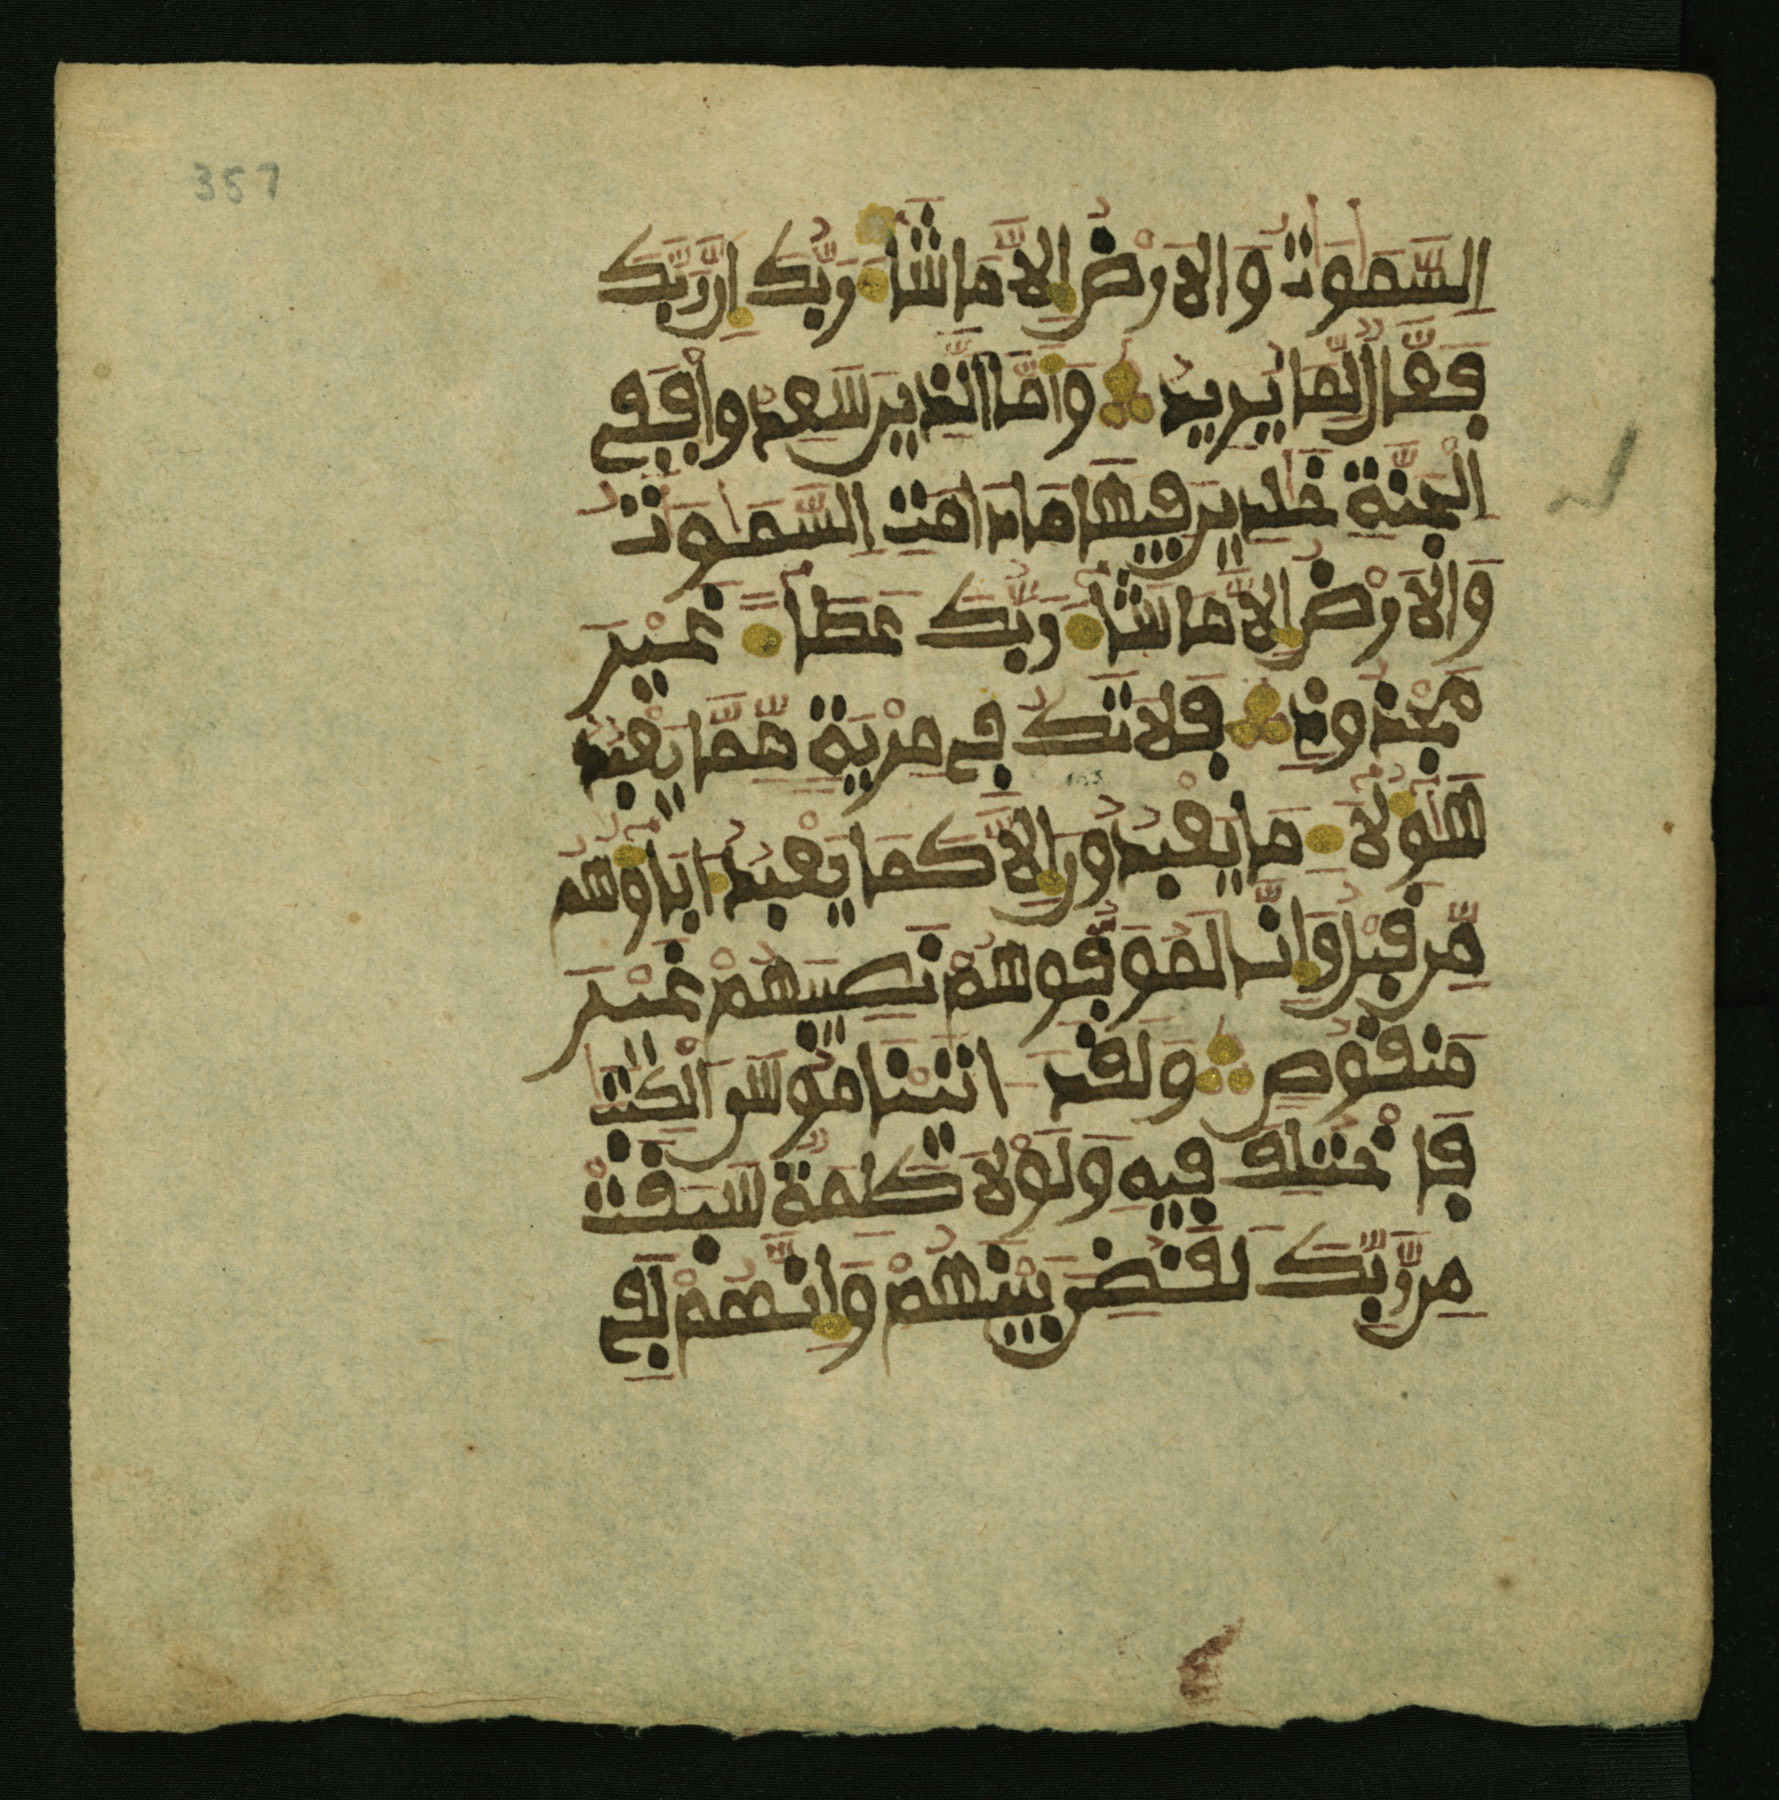 357
السَّمَوَتُ وَالَارْضُ إِلَّا مَا شَآءَ رَبُّكَ إِنَّ رَبَّكَ
فَعَّالٌ لِّمَا يُرِيدُ وَأَمَّا الَّذِينَ سَعِدُوا فَفِے
الْجَنَّةِ خَلِدِينَ فِيهَا مَا دَامَتِ السَّمَوَتُ
وَالَارْضُ إِلَّا مَا شَآءَ رَبُّكَ عَطَآءً غَيْرَ
مَجْذُوذٍ فَلَا تَكُ فِے مِرْيَةٍ مِّمَّا يَعْبُدُ
هَؤُلَآءِ مَا يَعْبُدُونَ إِلَّا كَمَا يَعْبُدُ ءَابَآؤُهُم
مِّن قَبْلُ وَإِنَّا لَمُوَفُّوهُمْ نَصِيبَهُمْ غَيْرَ
مَنقُوصٍ وَلَقَدَ ـاتَيْنَا مُوسَى الْكِتَبَ
فَاخْتُلِفَ فِيهِ وَلَوْلَا كَلِمَةٌ سَبَقَتْ
مِن رَّبِّكَ لَقُضِيَ بَيْنَهُمْ وَإِنَّهُمْ لَفِے